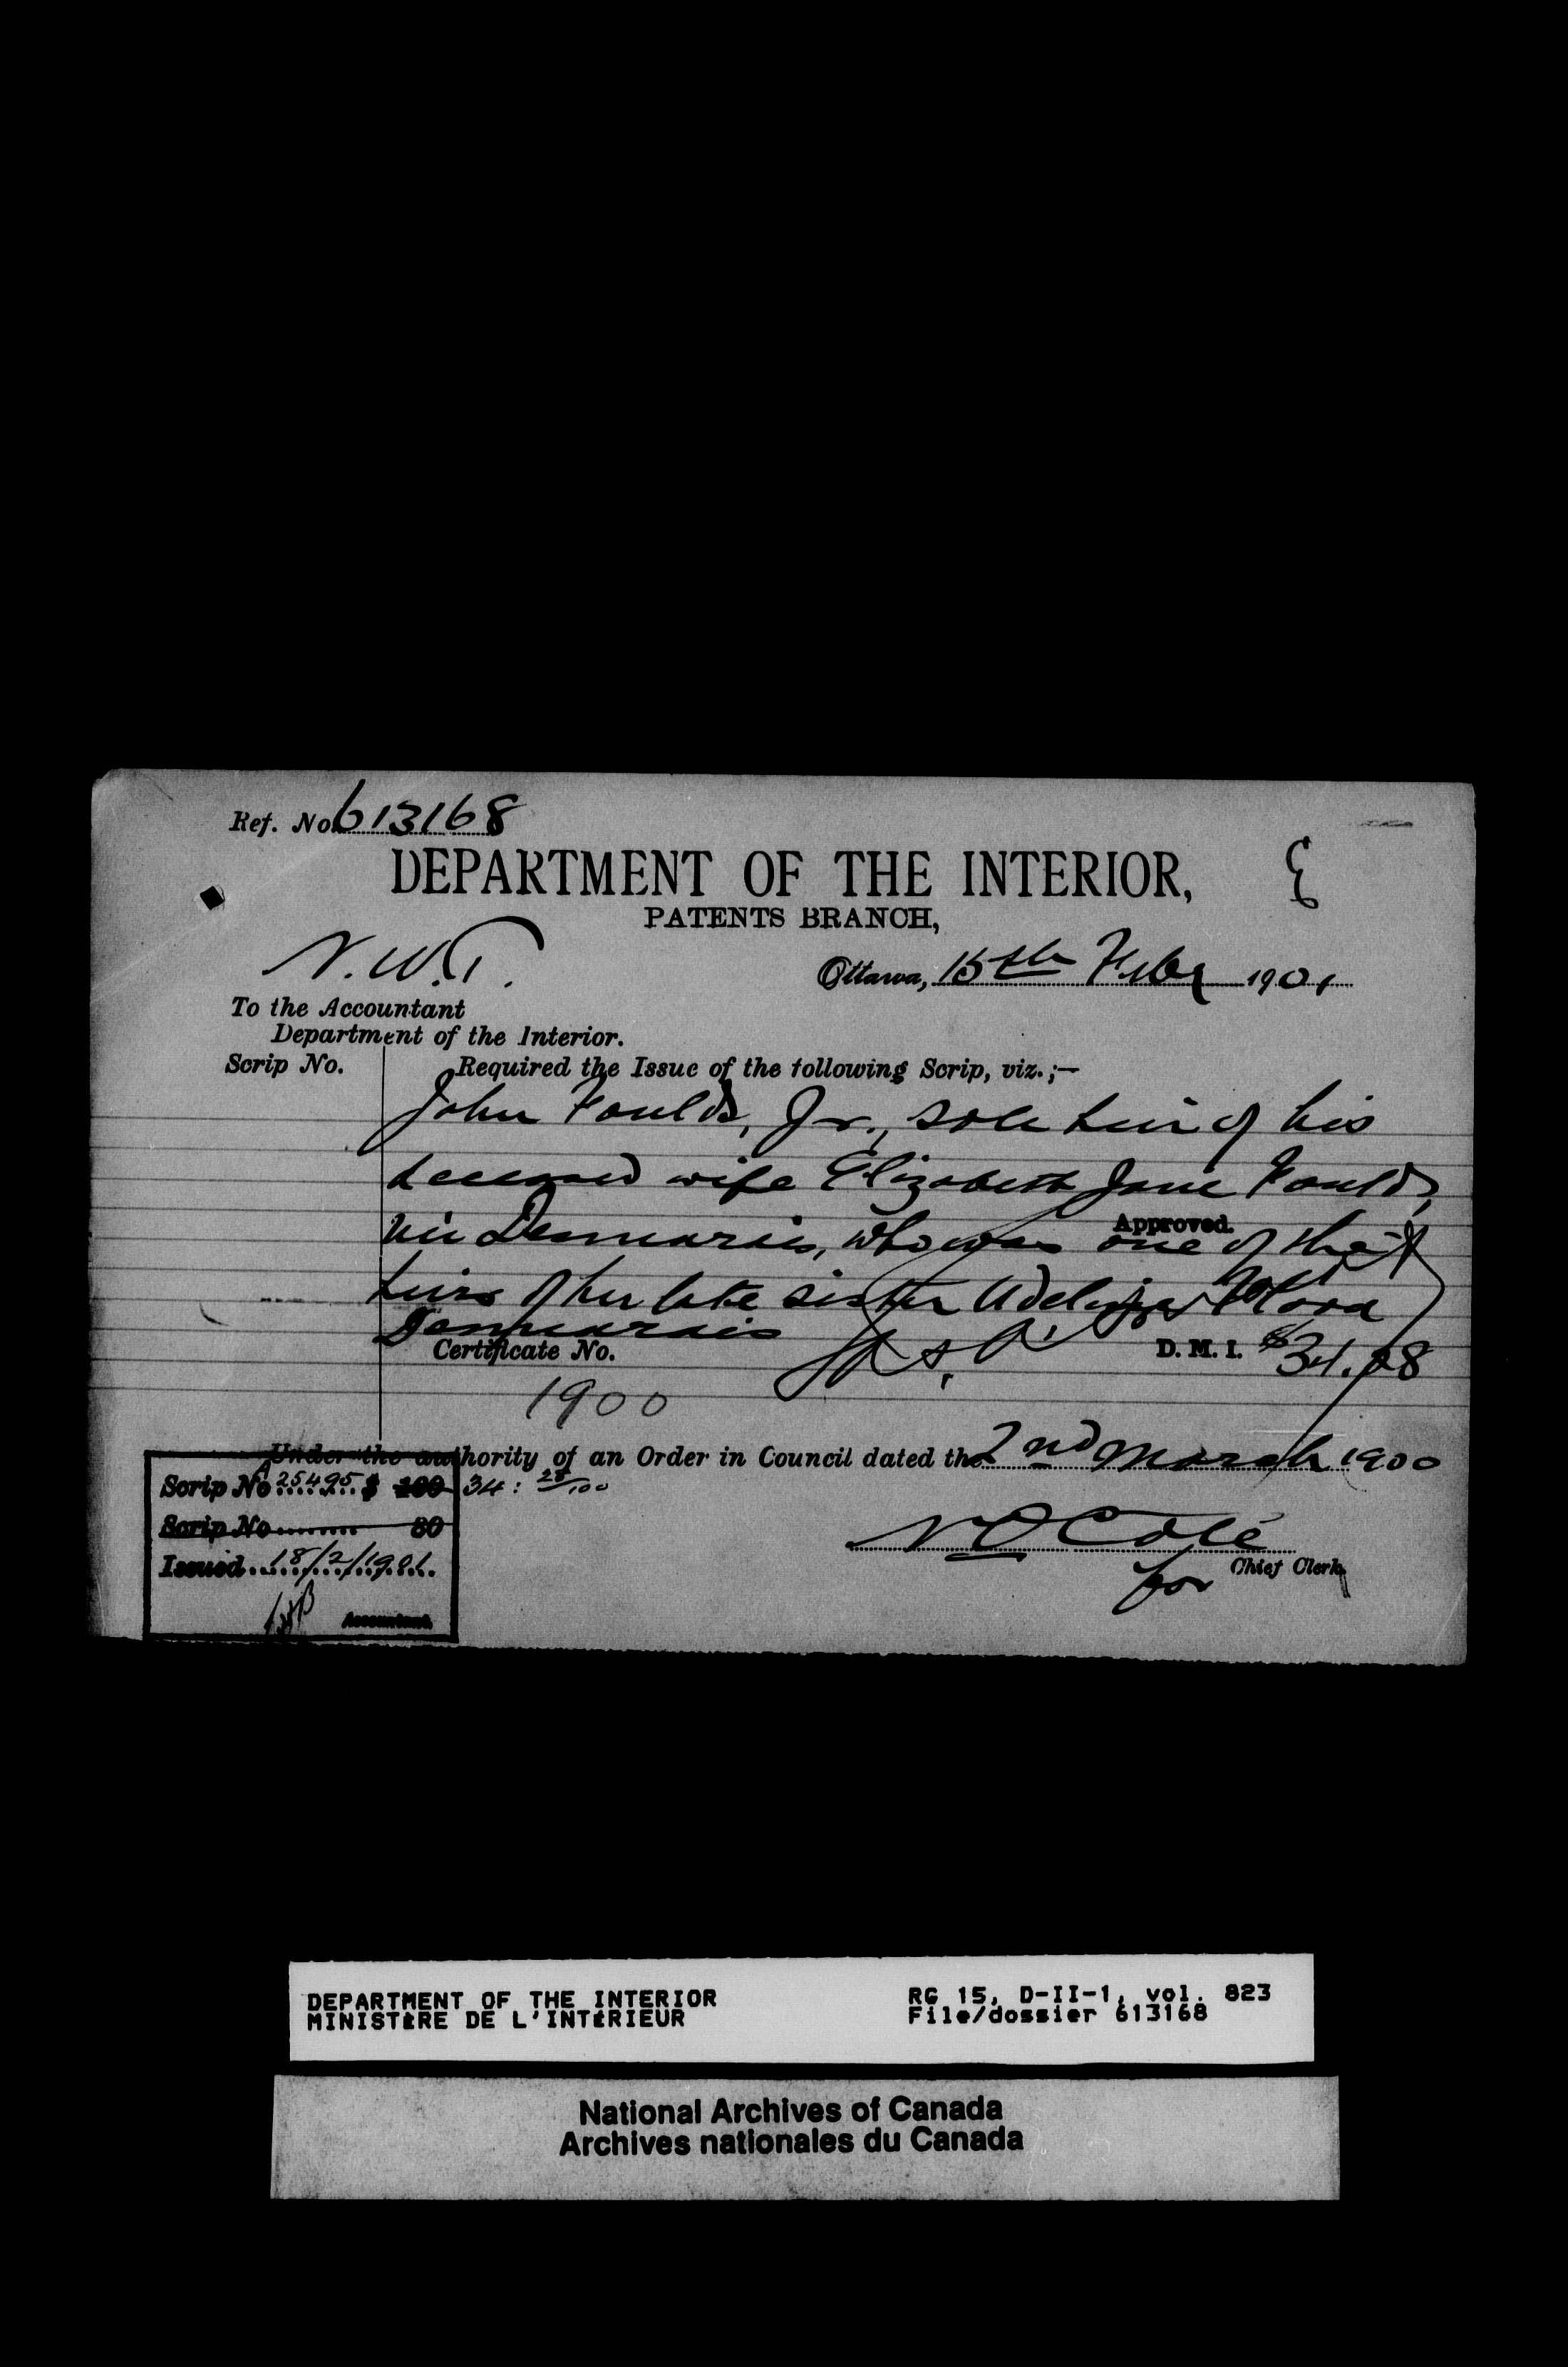 Ref. No. 613168
DEPARTMENT OF THE INTERIOR,
PATENTS BRANCH,
N.W.T.
Ottawa, 15th Feby 1901
To the Accountant
Department of the Interior.
Scrip No.
Required the Issue of the following Scrip, viz.;—
John Foulds, Jr., sole heir of his
deceased wife Elizabeth Jane Foulds,
née Desmarais, who was one of the
Approved.
heirs of her late sister Adelgise Flora
Desmarais
Certificate No.
D. M. I. $34.28
1900
Under the authority of an Order in Council dated the 2nd March 1900
Scrip No A 25495 $ 160 34: 28/100
Scrip No ........ 80
Issued 18/2/1901.
Accountant.
N O Coté
for Chief Clerk
DEPARTMENT OF THE INTERIOR
MINISTÈRE DE L'INTÉRIEUR
RG 15, D-II-1, vol. 823
File/dossier 613168
National Archives of Canada
Archives nationales du Canada